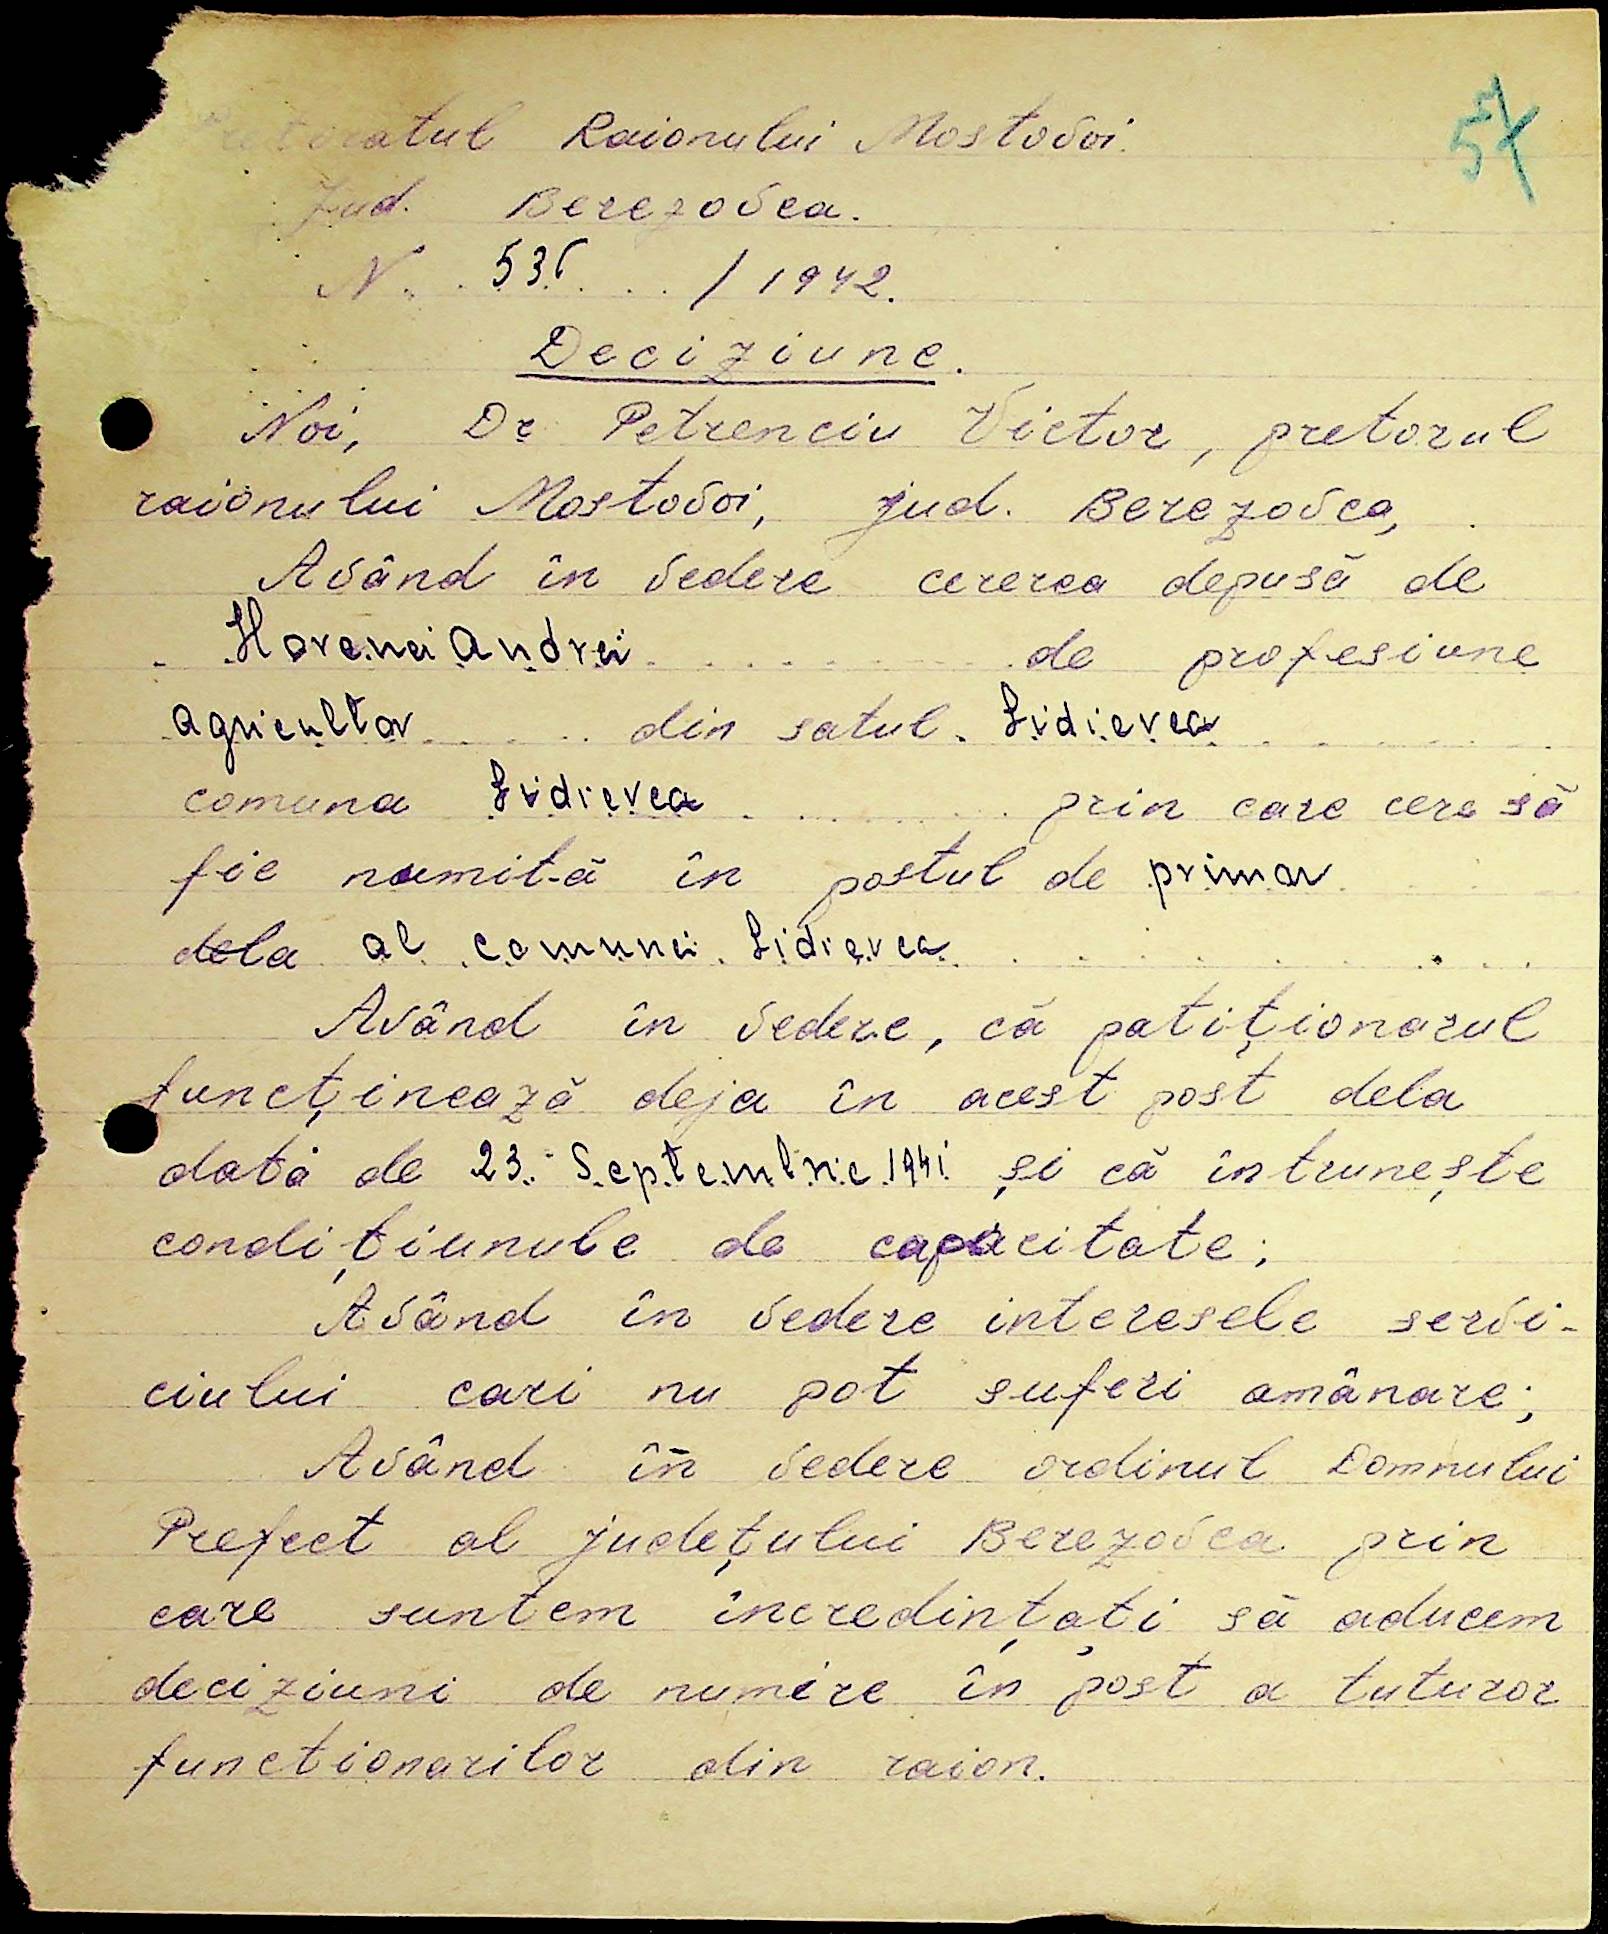 57
Pretoratul Raionului Mostovoi.
Jud. Berezovca.
N. 536 / 1942.
Deciziune.
Noi, Dr Petrenciu Victor, pretorul
raionului Mostovoi, jud. Berezovca,
Având în vedere cererea depusă de
Horenei Andrei de profesiune
agricultor din satul Lidievca
comuna Lidievca prin care cere să
fie numit-ă în postul de primar
dela al comunei Lidievca
Având în vedere, că patiționarul
funcținează deja în acest post dela
data de 23. Septembrie 1941 și că întrunește
condițiunule de capacitate;
Având în vedere interesele servi-
ciului cari nu pot suferi amânare;
Având în vedere ordinul Domnului
Prefect al județului Berezovca prin
care suntem încredințați să aducem
deciziuni de numire în post a tuturor
functionarilor din raion.